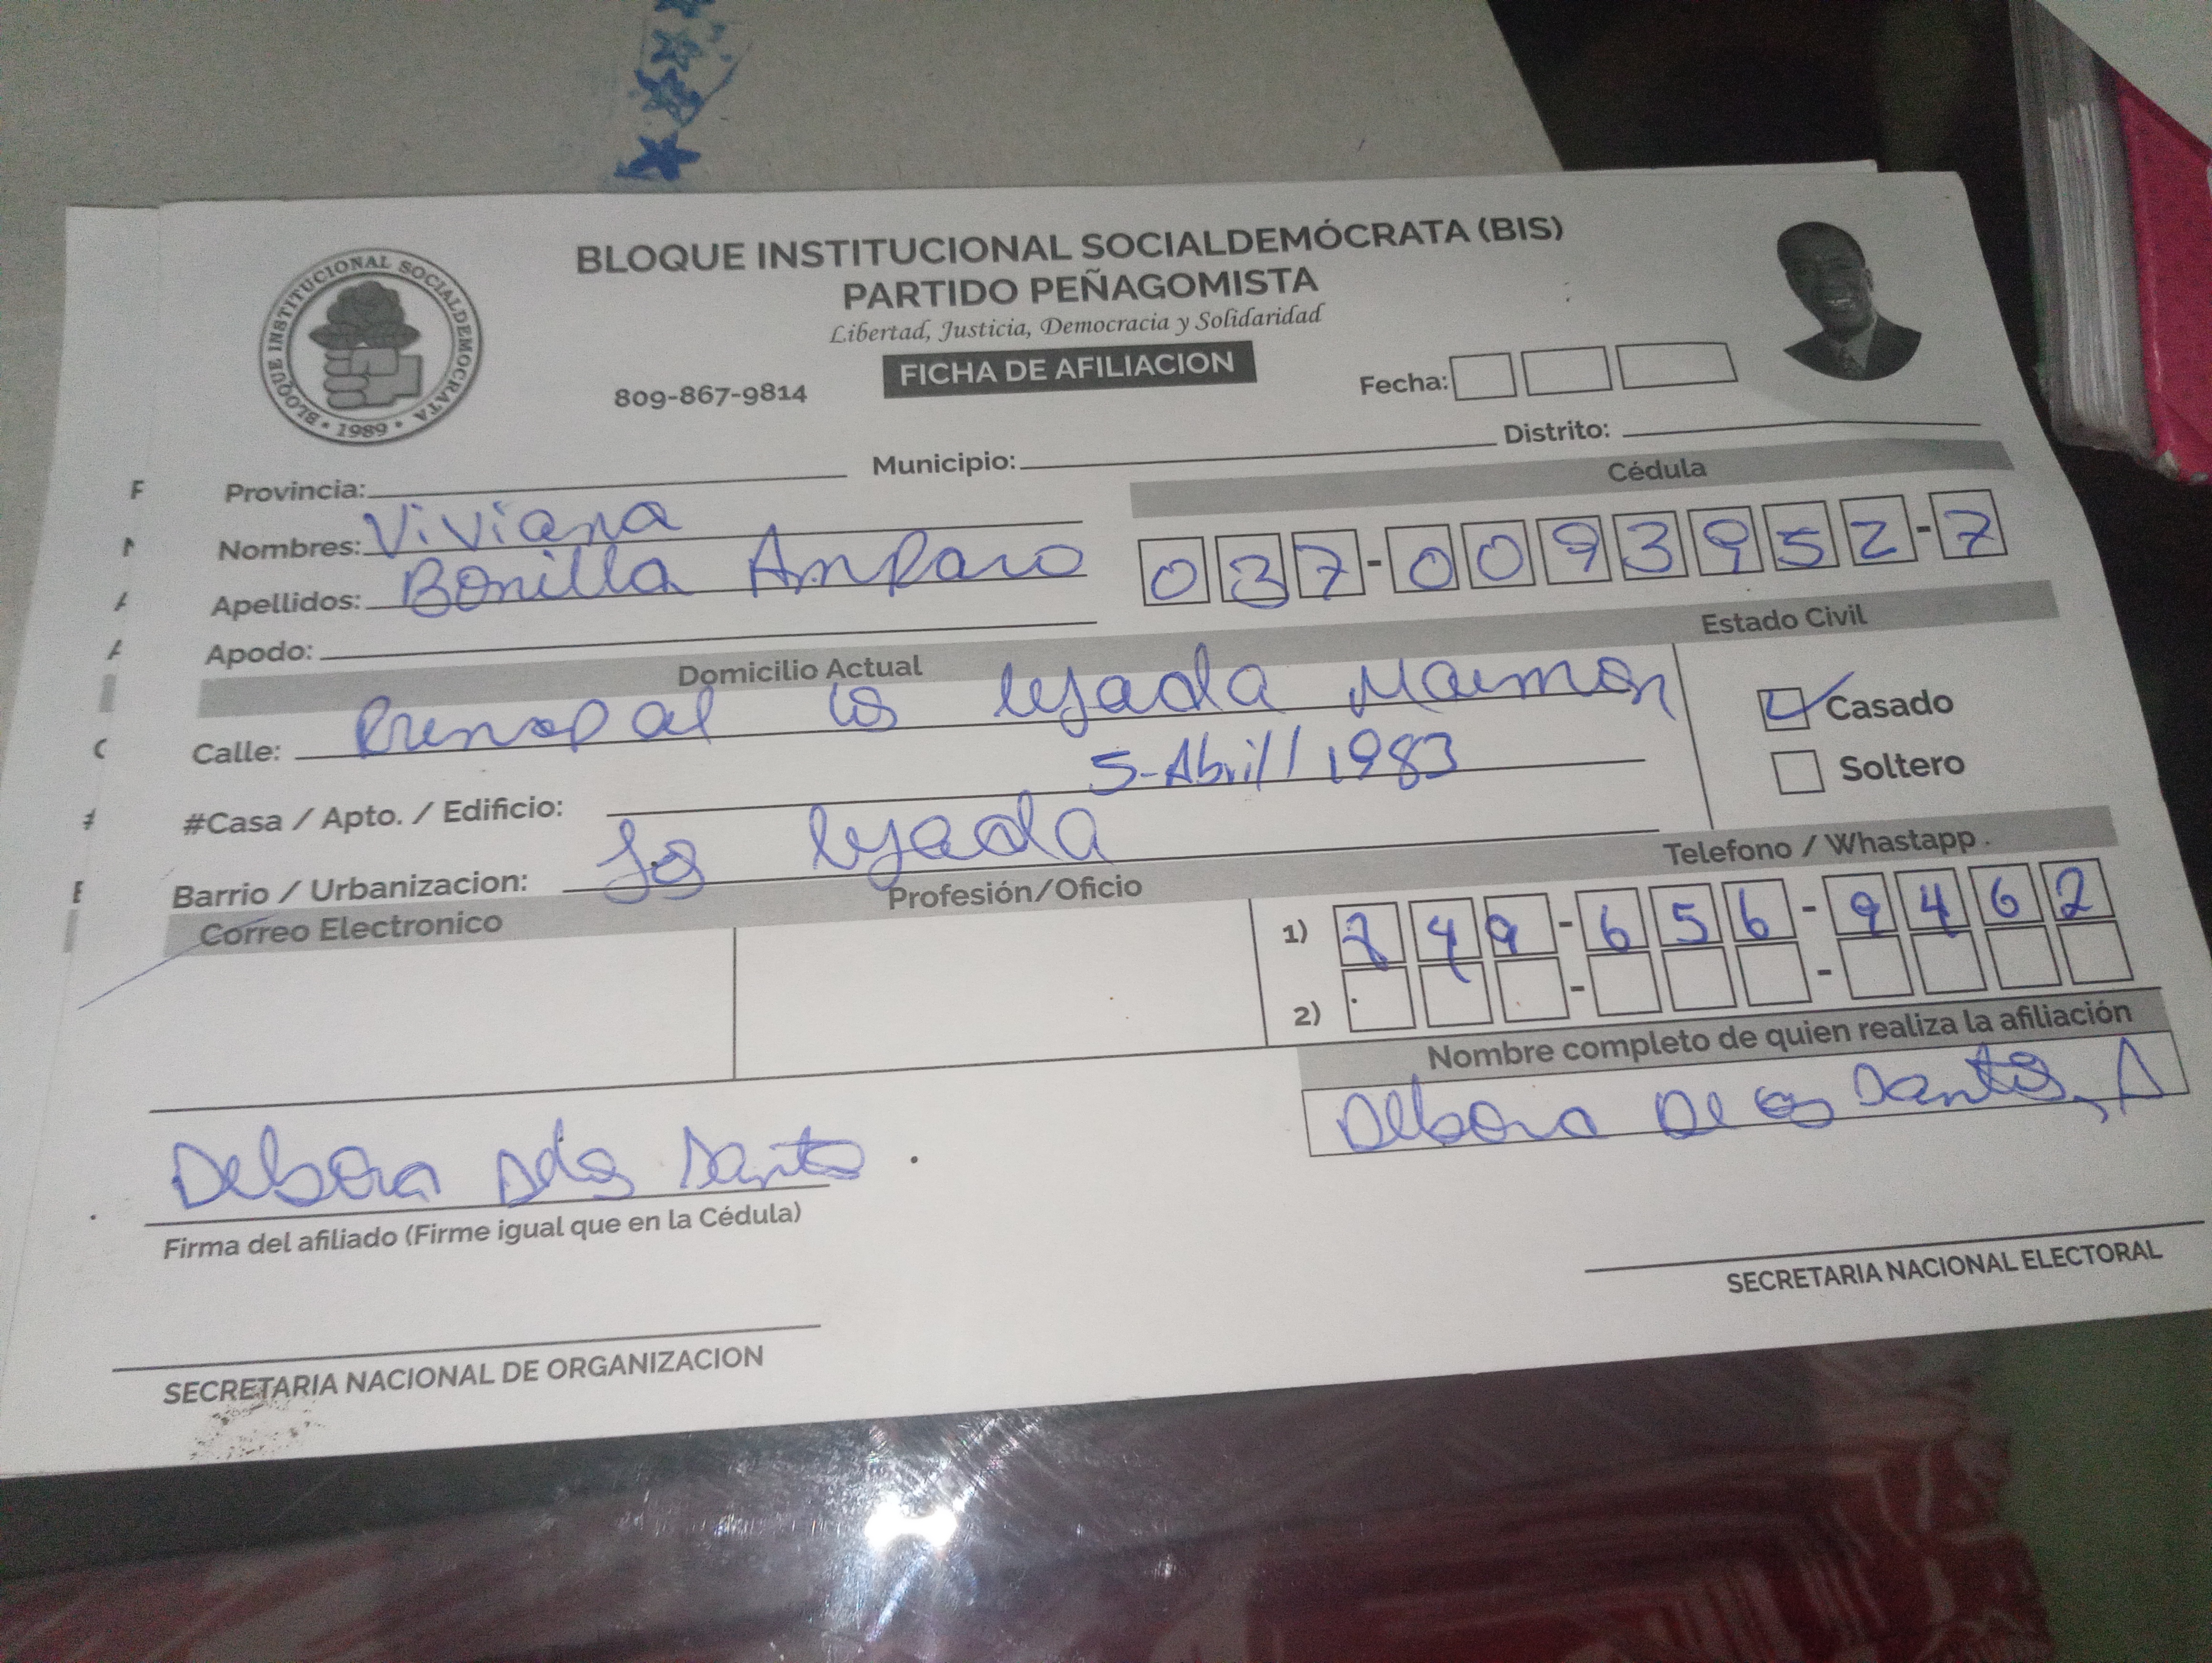 BLOQUE INSTITUCIONAL SOCIALDEMÓCRATA (BIS)
PARTIDO PEÑAGOMISTA
Libertad, Justicia, Democracia y Solidaridad
FICHA DE AFILIACION
BLOQUE INSTITUCIONAL SOCIALDEMOCRATA
• 1989 •
809-867-9814
Fecha:
Provincia: Municipio: Distrito:
Cédula
Nombres: Viviana
Apellidos: Bonilla Amparo
037-0093952-7
Apodo:
Domicilio Actual
Estado Civil
Calle: Prensipal los lejada Maimon
Casado
#Casa / Apto. / Edificio: 5-Abril/1983
Soltero
Barrio / Urbanizacion: los lejada
Telefono / Whastapp.
Correo Electronico
Profesión/Oficio
1) 849-656-9462
2) - -
Nombre completo de quien realiza la afiliación
Debora De los Santos, A
Debora Delos Santos
Firma del afiliado (Firme igual que en la Cédula)
SECRETARIA NACIONAL ELECTORAL
SECRETARIA NACIONAL DE ORGANIZACION